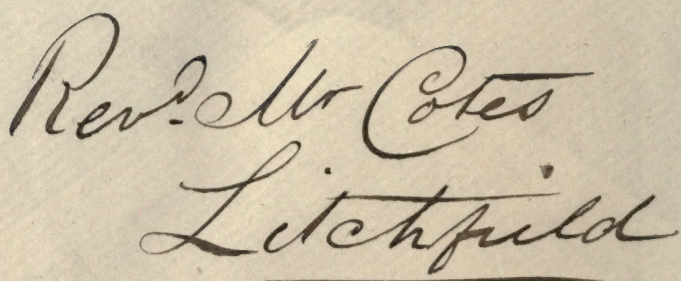 Revd. Mr Cotes
Litchfield